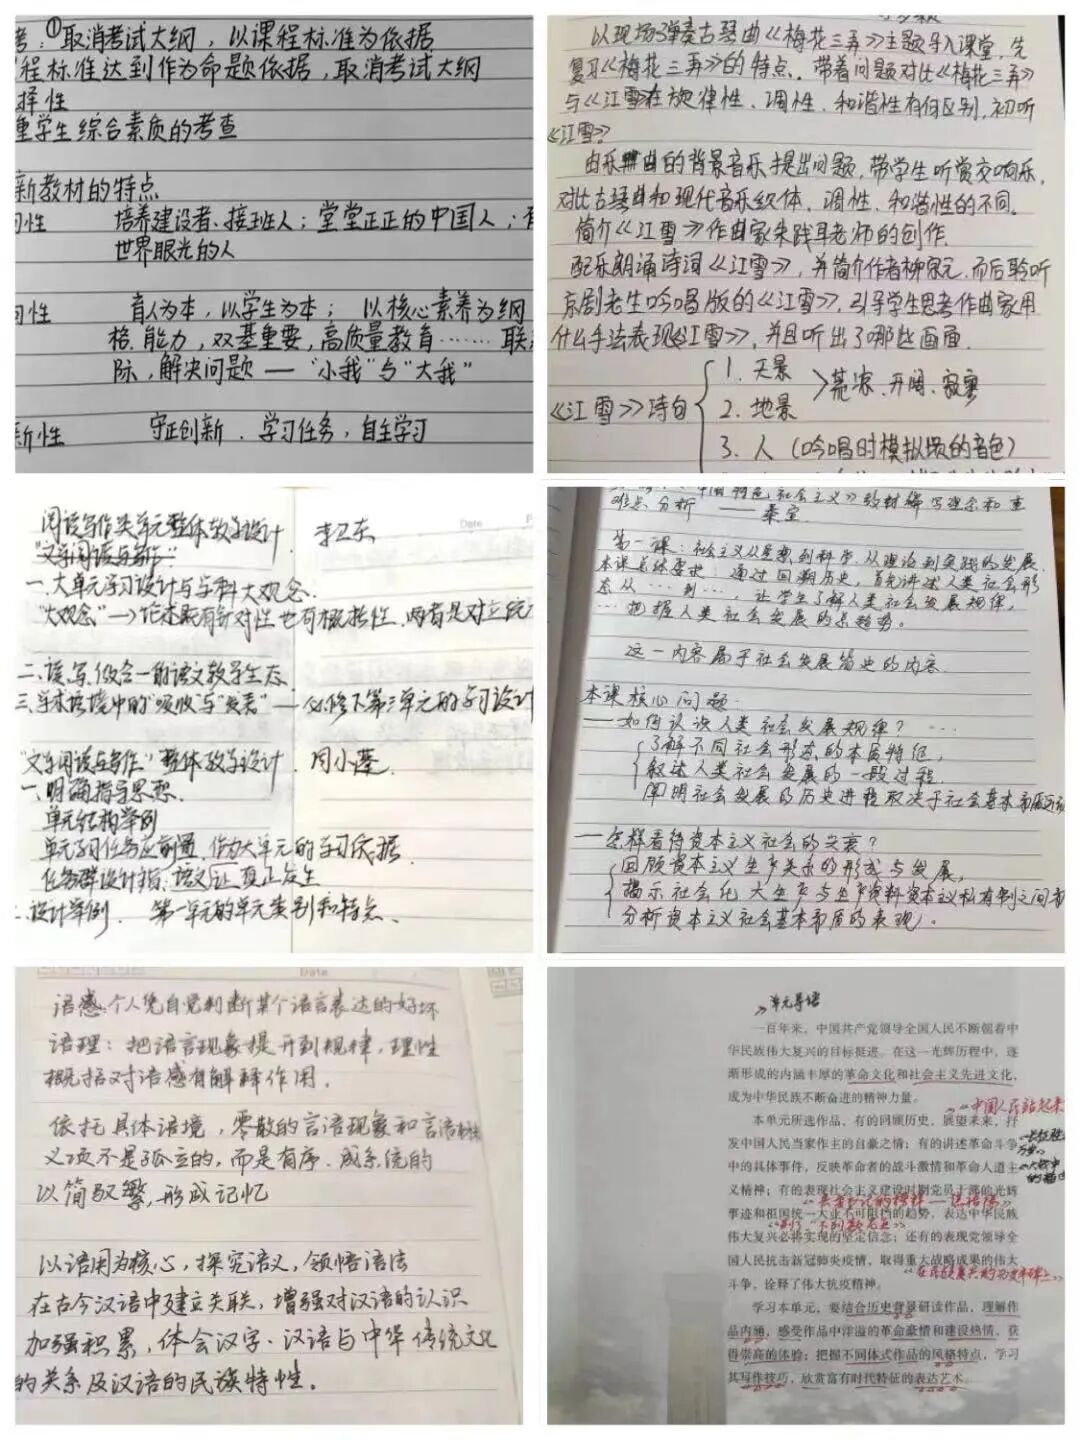 考：①取消考试大纲，以课程标准为依据
程标准达到作为命题依据，取消考试大纲
择性
重学生综合素质的考查
新教材的特点
向性 培养建设者、接班人；堂堂正正的中国人；有
世界眼光的人
同性 育人为本，以学生为本；以核心素养为纲
格、能力，双基重要，高质量教育……联
际，解决问题—“小我”与“大我”
新性 守正创新、学习任务，自主学习
以现场弹奏古琴曲《梅花三弄》主题导入课堂，先
复习《梅花三弄》的特点。带着问题对比《梅花三弄》
与《江雪》在旋律性、调性、和谐性有何区别，初听
《江雪》
由乐曲的背景音乐提出问题，带学生听赏交响乐，
对比古琴曲和现代音乐织体、调性、和谐性的不同。
简介《江雪》作曲家朱践耳老师的创作。
配乐朗诵诗词《江雪》，并简介作者柳宗元，而后聆听
京剧老生吟唱版的《江雪》，引导学生思考作曲家用
什么手法表现《江雪》，并且听出了哪些画面
《江雪》诗句
1. 天景
2. 地景
荒凉、开阔、寂寥
3. 人（吟唱时模拟埙的音色）
阅读写作类单元整体教学设计 李卫东
“文学阅读与写作”
一、大单元学习设计与学科大观念
“大观念”→论述既有针对性也有概括性、两者是对立统
二、读、写、做合一的语文教学生态
三、学术情境中的“吸收”与“表达”—必修下第三单元的学习设计
“文学阅读与写作”整体教学设计 周小蓬
一、明确指导思想
单元结构举例
单元学习任务应前置，作为大单元的学习依据
任务群设计指：语文
真正发生
设计举例 第一单元的单元类别和特点
中国特色社会主义》教材编写理念和重
难点分析 ——秦宣
第一课：社会主义从空想到科学、从理论到实践的发展
本课总体要求：通过回溯历史，首先讲述人类社会形
态从…到…，让学生了解人类社会发展规律，
…把握人类社会发展的总趋势。
这一内容属于社会发展简史的内容
本课核心问题
——如何认识人类社会发展规律？…
了解不同社会形态的本质特征，
叙述人类社会发展的一般过程，
阐明社会发展的历史进程取决于社会基本矛盾运动
——怎样看待资本主义社会的兴衰？
回顾资本主义生产关系的形成与发展，
揭示社会化大生产与生产资料资本主义私有制之间矛
分析资本主义社会基本矛盾的表现。
Date
语感：个人凭自觉判断某个语言表达的好坏
语理：把语言现象提升到规律，理性
概括对语感有解释作用。
依托具体语境，零散的言语现象和言语材料
义项不是孤立的，而是有序、成系统的
以简驭繁，形成记忆
以语用为核心，探究语义，领悟语法
在古今汉语中建立关联，增强对汉语的认识
加强积累，体会汉字、汉语与中华传统文化
的关系及汉语的民族特性。
单元导语
一百年来，中国共产党领导全国人民不断朝着中
华民族伟大复兴的目标挺进。在这一光辉历程中，逐
渐形成的内涵丰厚的革命文化和社会主义先进文化，
成为中华民族不断奋进的精神力量。
“中国人民站起来
本单元所选作品，有的回顾历史，展望未来，抒
发中国人民当家作主的自豪之情；有的讲述革命斗争
中的具体事件，反映革命者的战斗激情和革命人道主
义精神；有的表现社会主义建设时期党员干部的光辉
“县委书记的榜样——焦裕禄”
事迹和祖国统一大业不可阻挡的趋势，表达中华民族
伟大复兴必将实现的坚定信念；还有的表现党领导全
国人民抗击新冠肺炎疫情，取得重大战略成果的伟大
“在民族复兴的历史丰碑上”
斗争，诠释了伟大抗疫精神。
学习本单元，要结合历史背景研读作品，理解作
品内涵，感受作品中洋溢的革命豪情和建设热情，获
得崇高的体验；把握不同体式作品的风格特点，学习
其写作技巧，欣赏富有时代特征的表达艺术。